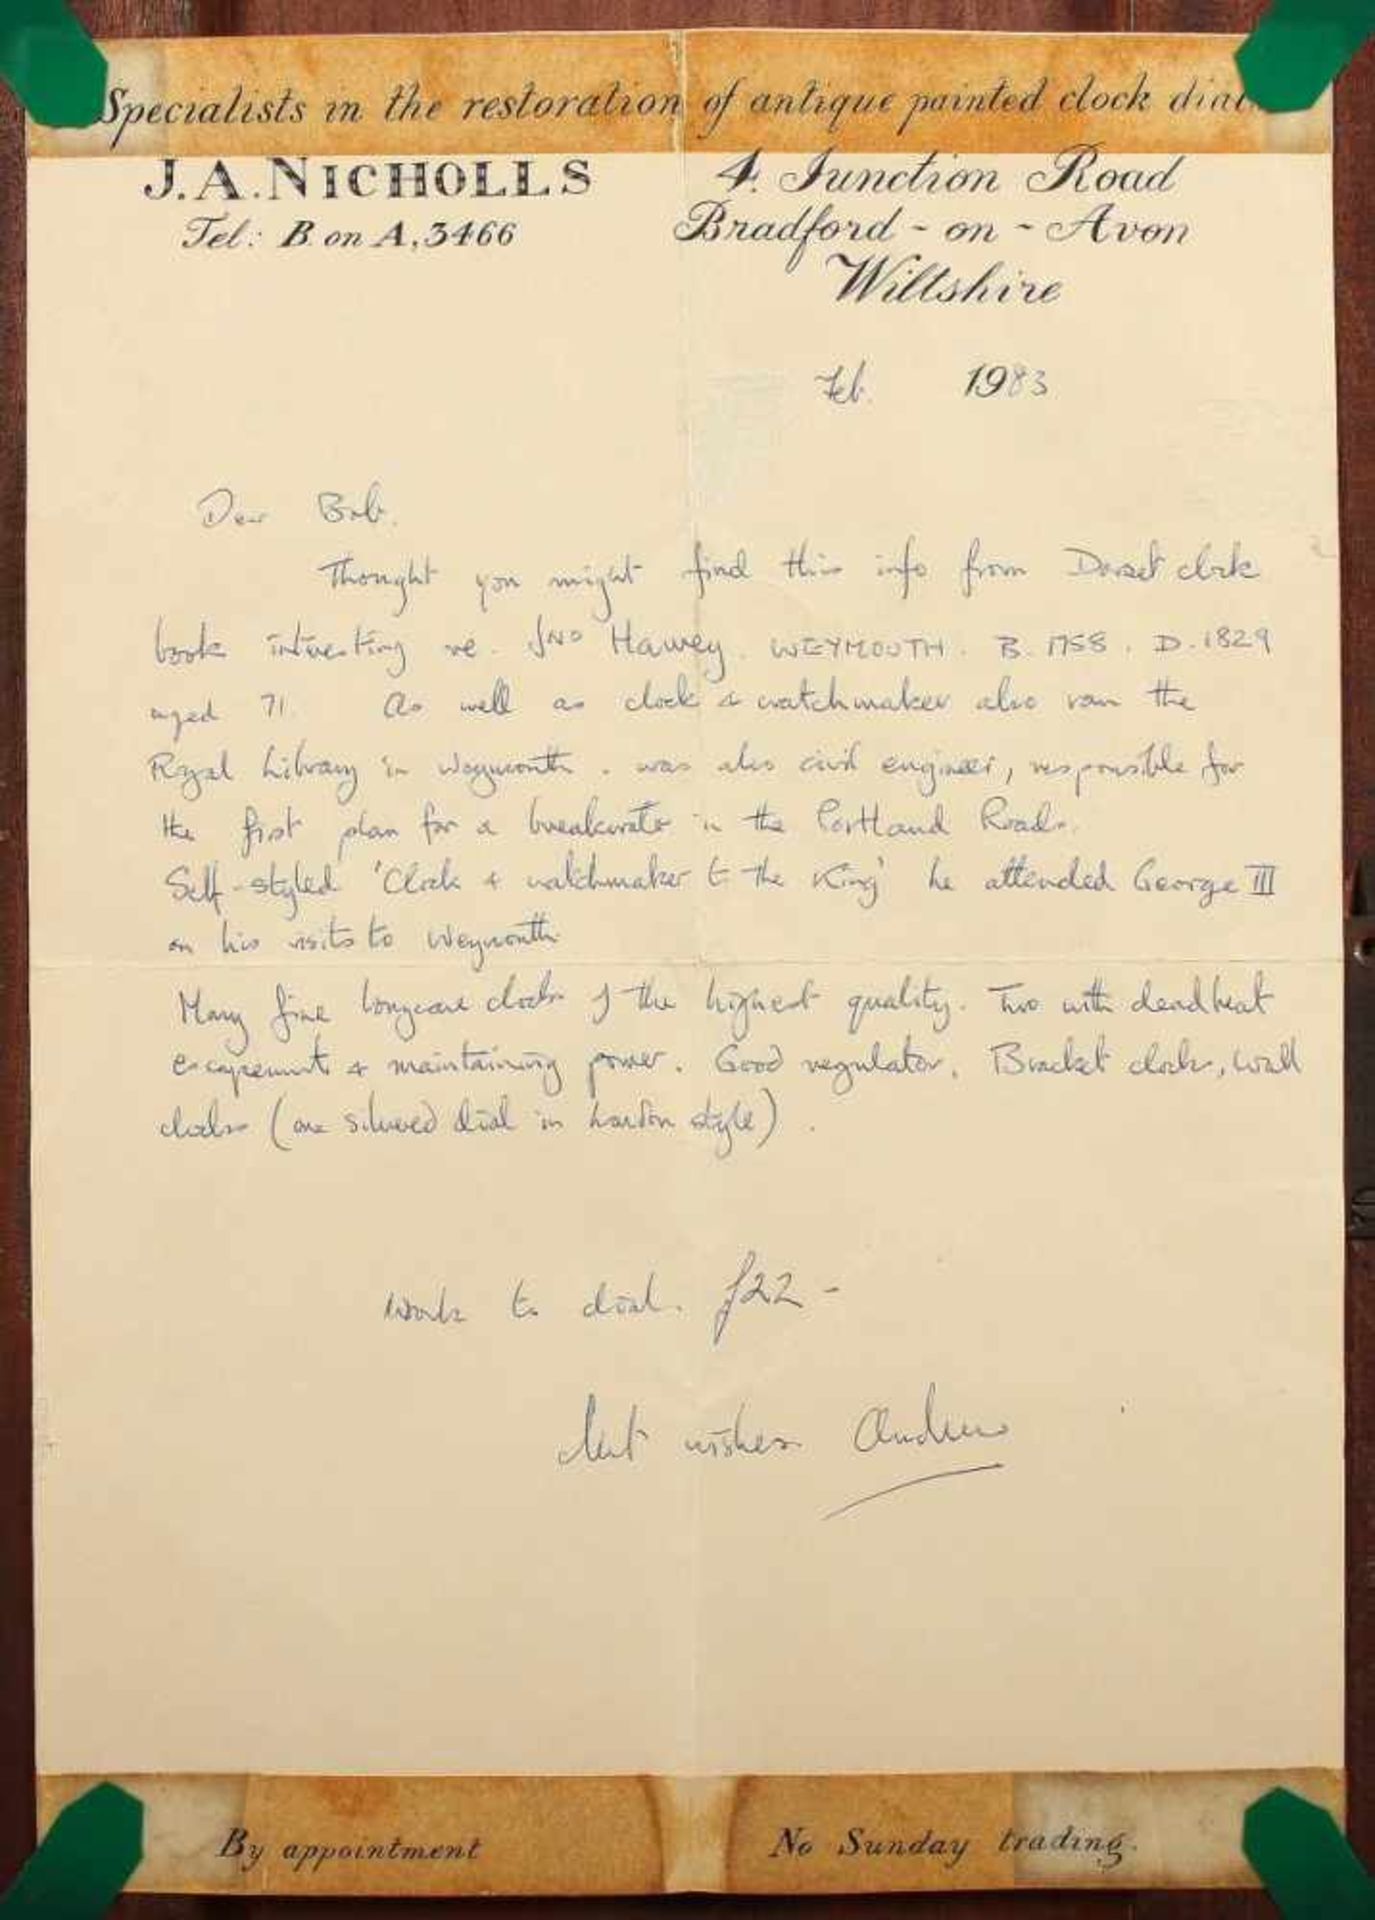 Specialists in the restoration of antique painted clock dial
J.A.NICHOLLS
Tel: B on A, 3466
4. Junction Road
Bradford - on - Avon
Wiltshire
Feb. 1983
Dear Bob.
Thought you might find this info from Dorset clock
book interesting re. Jno Harvey. WEYMOUTH. B. 1758. D. 1829
aged 71. As well as clock & watchmaker also ran the
Royal Library in Weymouth. was also civil engineer, responsible for
the first plan for a breakwater in the Portland Roads.
Self-styled 'Clock & watchmaker to the King' he attended George III
on his visits to Weymouth
Many fine longcase clocks of the highest quality. Two with deadbeat
escapements & maintaining power. Good regulator. Bracket clocks, wall
clocks (one silvered dial in London style).
Work to dial. £22 -
best wishes Andrew
By appointment
No Sunday trading.